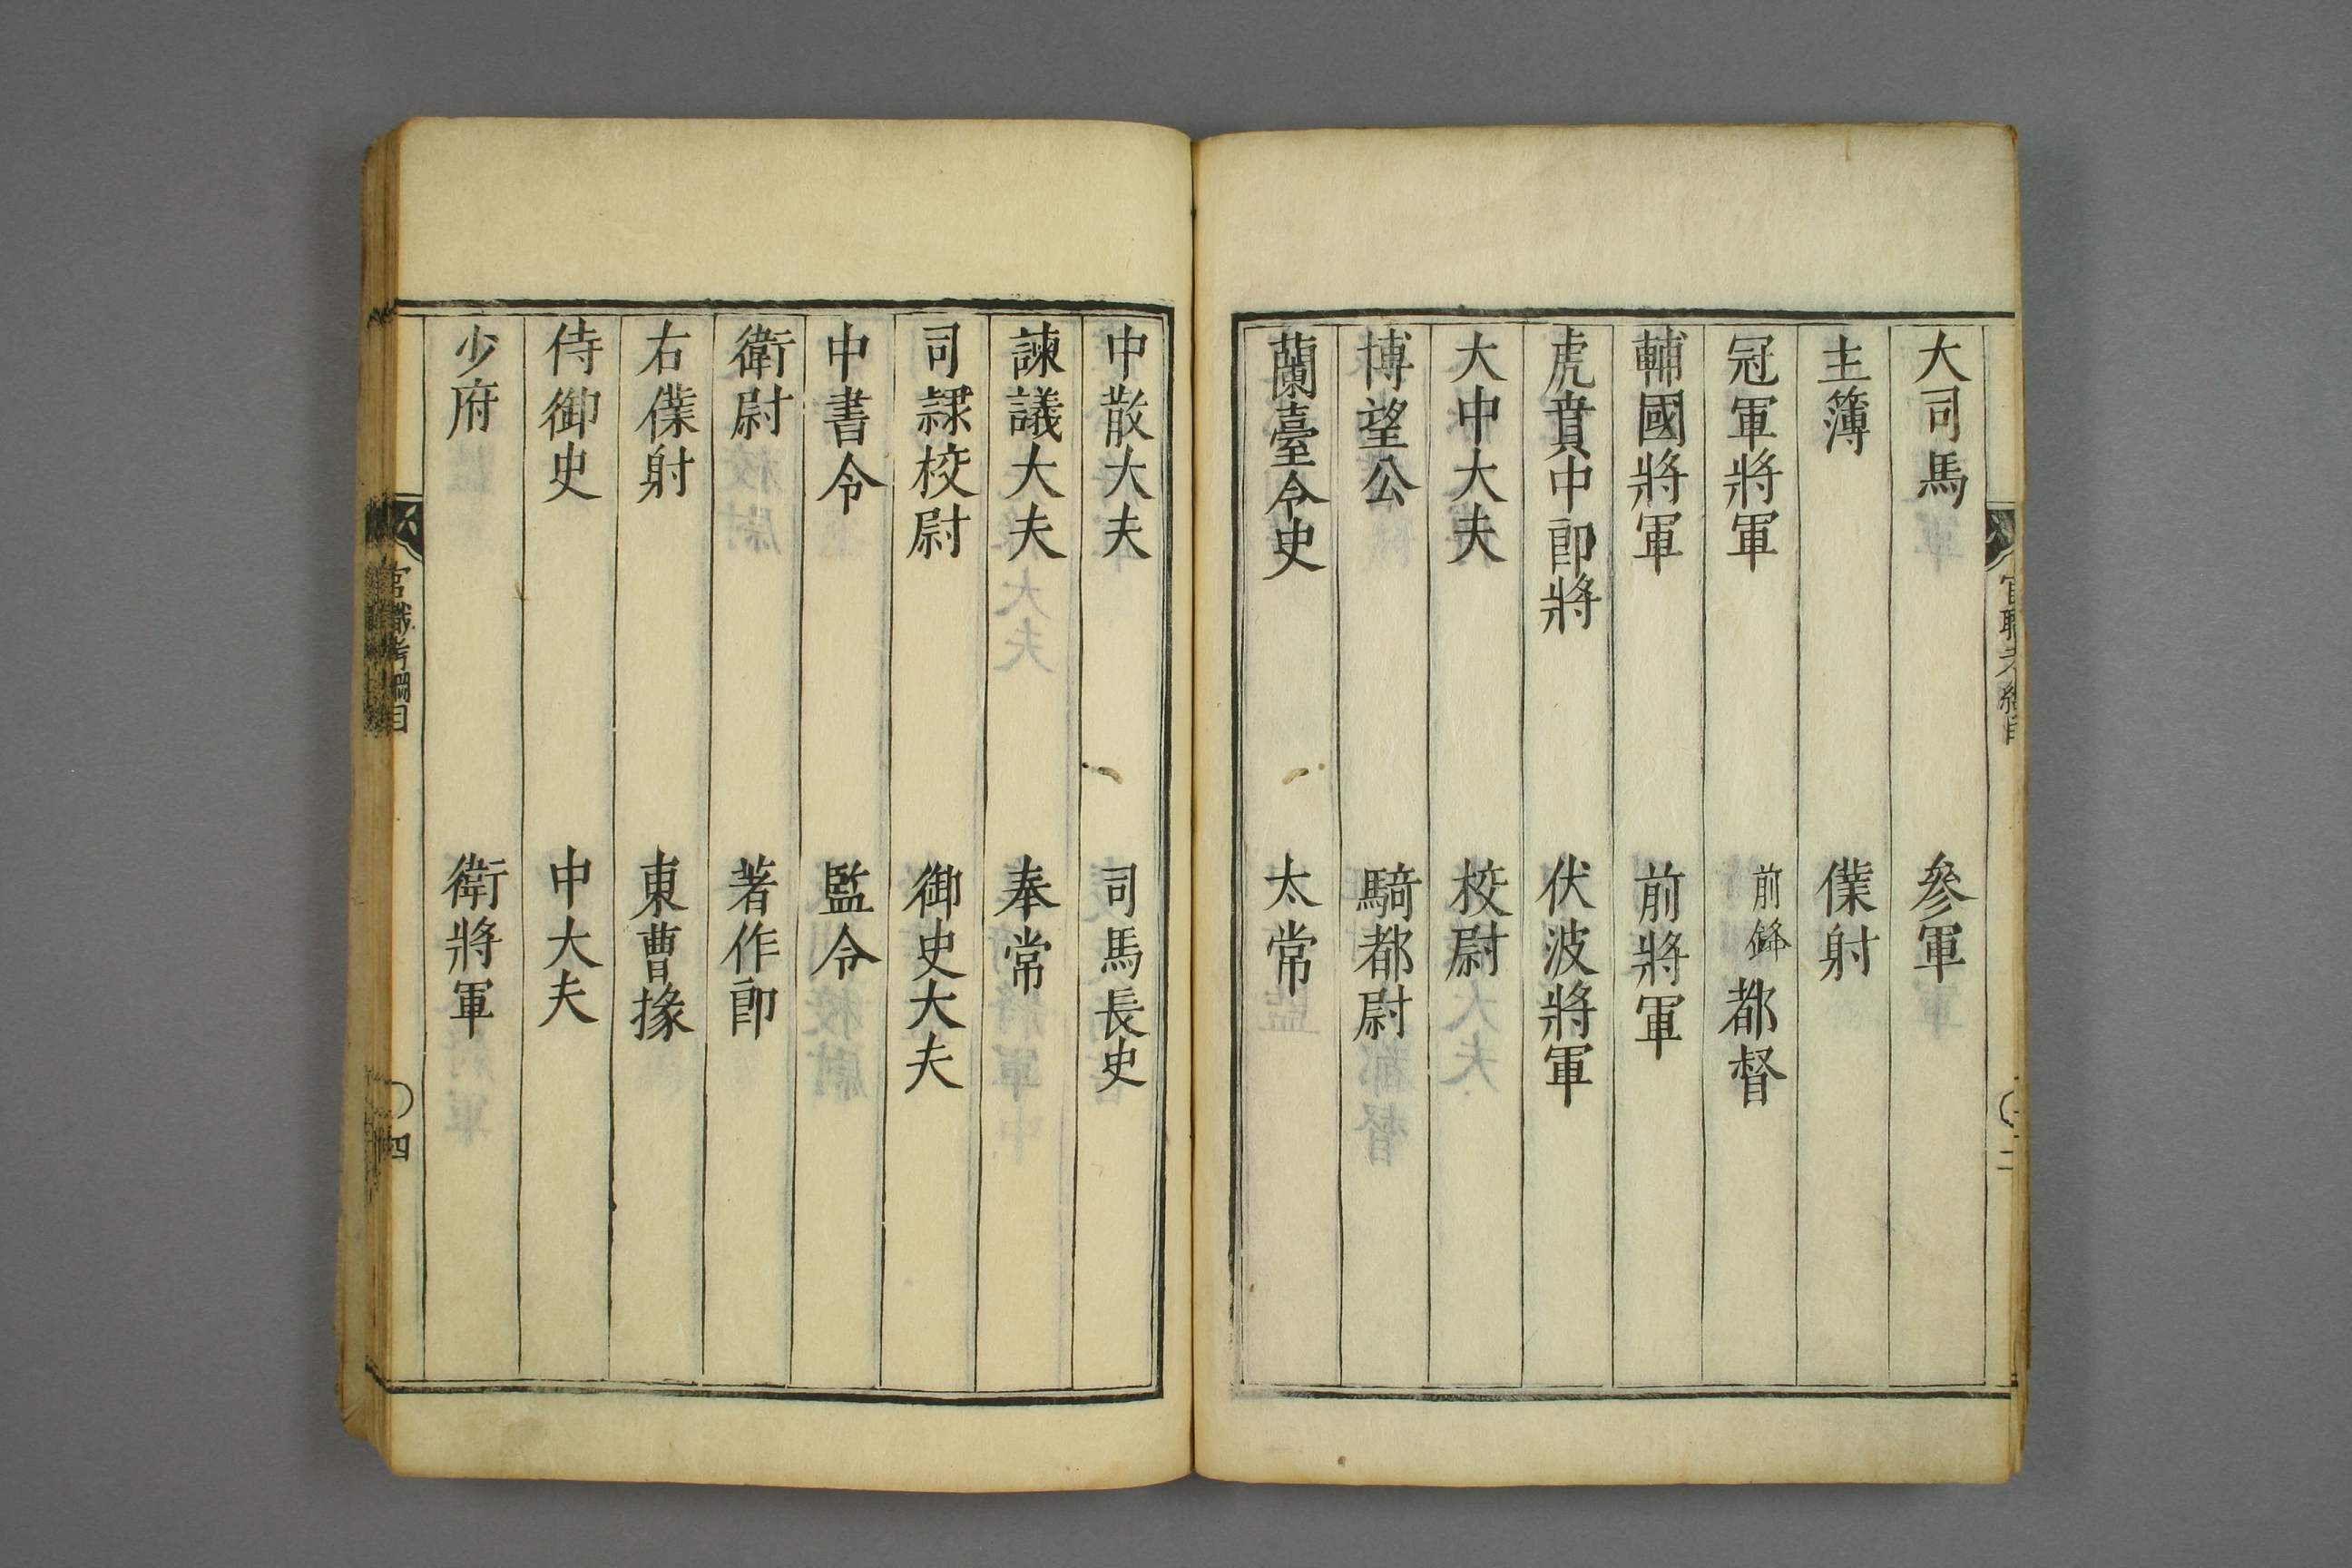 大司馬　參軍
主簿　僕射
冠軍將軍　前鋒都督
輔國將軍　前將軍
虎賁中郎將　伏波將軍
大中大夫　校尉
博望公　騎都尉
蘭臺令史　太常
中散大夫　司馬長史
諫議大夫　奉常
司隸校尉　御史大夫
中書令　監令
衛尉　著作郎
右僕射　東曹掾
侍御史　中大夫
少府　衛將軍
官職考綱目
四